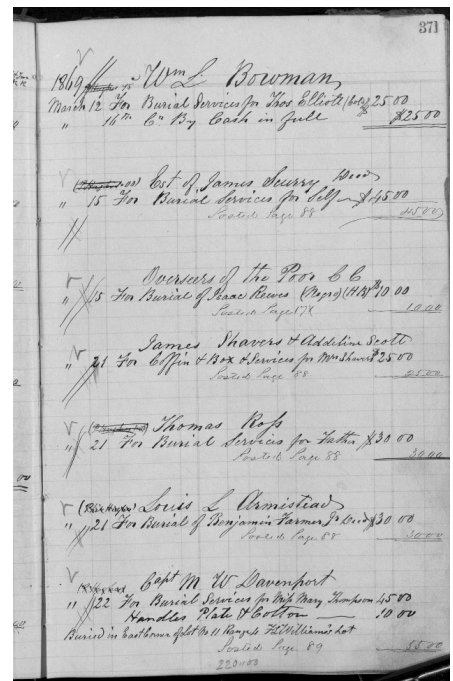 371
1869 Wm L Bowman
March 12 For Burial Services for Thos Elliott 25 00
" 16th Cr By Cash in full $25 00
Est of James Scurry Decd
" 15 For Burial Services for Self $45 00
Posted Page 88 45 00
Overseers of the Poor C C
" 15 For Burial of Isaac Reeves (Negro) 10.00
Posted Page 10.00
James Shavers & Addeline Scott
" 21 For Coffin & Box & Services for Mrs Shavers $25 00
Posted Page 88 25 00
Thomas Ross
" 21 For Burial Services for Father $30 00
Posted Page 88 30 00
Louis L Armistead
" 21 For Burial of Benjamin Farmer Jr Decd $30 00
Posted Page 88 30 00
Capt M W Davenport
" 22 For Burial Services for Miss Mary Thompson 45 00
Handles Plate & Cotton 10 00
Buried in East corner of Lot No 11 Range 4 Williams Lot
Posted Page 89 55 00